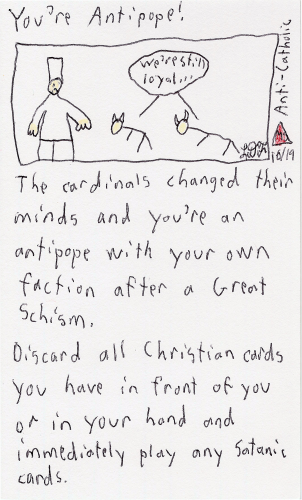 You're Antipope!
we're still
loyal...
Anti-Catholic
16/19
The cardinals changed their
minds and you're an
antipope with your own
faction after a Great
Schism.
Discard all Christian cards
you have in front of you
or in your hand and
immediately play any Satanic
cards.